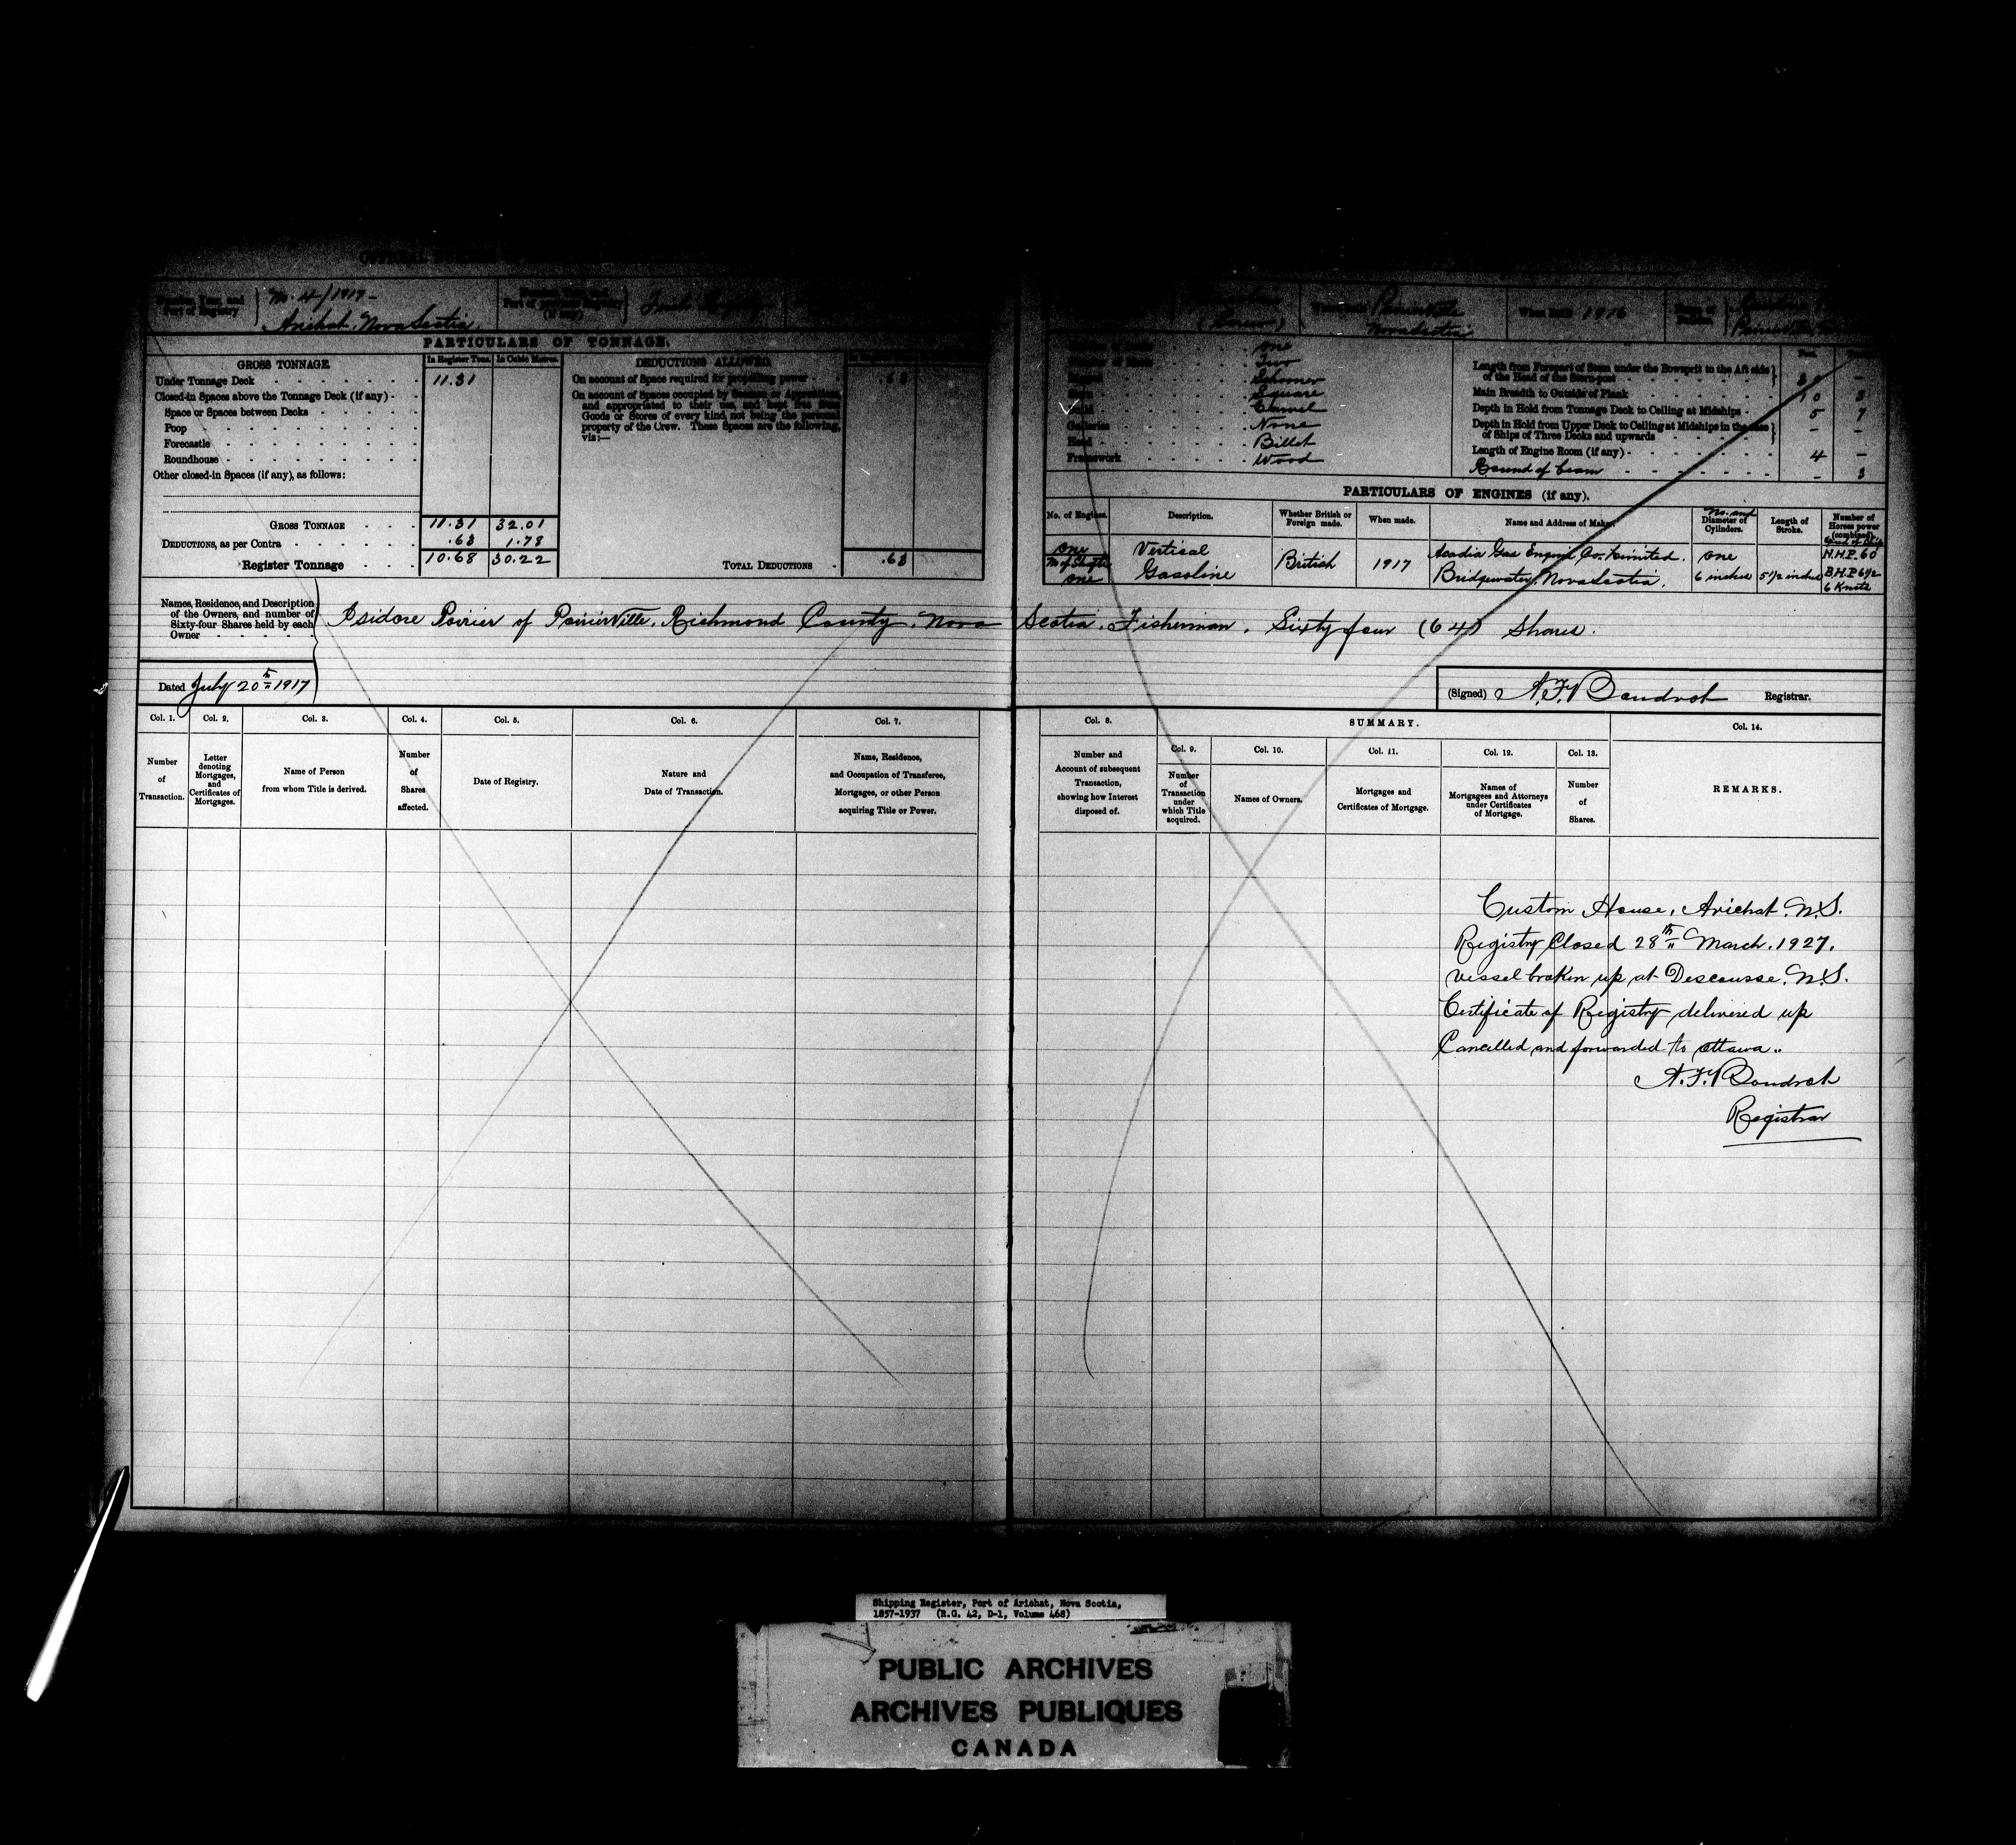 OFFICIAL NUMBER
Number, Year, and
Port of Registry
No. 4/1917-
Arichat. Nova Scotia.
Port of
(if any)
When Built 1916
Poirierville
Nova Scotia
PARTICULARS OF TONNAGE.
GROSS TONNAGE
In Register Tons.
In Cubic Metres.
DEDUCTIONS ALLOWED
Under Tonnage Deck 11.31
Closed-in Spaces above the Tonnage Deck (if any)
Space or Spaces between Decks
Poop
Forecastle
Roundhouse
Other closed-in Spaces (if any), as follows:
GROSS TONNAGE 11.31 32.01
DEDUCTIONS, as per Contra .63 1.78
Register Tonnage 10.68 30.22
On account of Space required for propelling power .63
On account of Spaces occupied by Seamen or Apprentices,
and appropriated to their use, and kept free from
Goods or Stores of every kind, not being the personal
property of the Crew. These Spaces are the following,
viz:—
TOTAL DEDUCTIONS .63
One
Two
Schooner
Square
Build Carvel
Galleries None
Head Billet
Framework Wood
Length from Forepart of Stem under the Bowsprit to the Aft side
of the Head of the Stern-post
Main Breadth to Outside of Plank 10 3
Depth in Hold from Tonnage Deck to Ceiling at Midships 5 7
Depth in Hold from Upper Deck to Ceiling at Midships in the case
of Ships of Three Decks and upwards – –
Length of Engine Room (if any) 4 –
Round of beam – 3
PARTICULARS OF ENGINES (if any).
No. of Engines.
Description.
Whether British or
Foreign made.
When made.
Name and Address of Maker.
No. and
Diameter of
Cylinders.
Length of
Stroke.
Number of
Horses power
(combined).
Speed of Ship
One
No of Shafts
One
Vertical
Gasoline
British
1917
Acadia Gas Engine Co. Limited.
Bridgewater, Nova Scotia.
One
6 inches
5 1/2 inches
N.H.P. 60
B.H.P 6 1/2
6 Knots
Names, Residence, and Description
of the Owners, and number of
Sixty-four Shares held by each
Owner
Isidore Poirier of PoirierVille. Richmond County. Nova Scotia. Fisherman. Sixty four (64) Shares.
Dated July 20th 1917
(Signed) A. F. Boudrot Registrar.
Col. 1.
Number
of
Transaction.
Col. 2.
Letter
denoting
Mortgages,
and
Certificates of
Mortgages.
Col. 3.
Name of Person
from whom Title is derived.
Col. 4.
Number
of
Shares
affected.
Col. 5.
Date of Registry.
Col. 6.
Nature and
Date of Transaction.
Col. 7.
Name, Residence,
and Occupation of Transferee,
Mortgages, or other Person
acquiring Title or Power.
Col. 8.
Number and
Account of subsequent
Transaction,
showing how Interest
disposed of.
SUMMARY.
Col. 9.
Number
of
Transaction
under
which Title
acquired.
Col. 10.
Names of Owners.
Col. 11.
Mortgages and
Certificates of Mortgage.
Col. 12.
Names of
Mortgagees and Attorneys
under Certificates
of Mortgage.
Col. 13.
Number
of
Shares.
Col. 14.
REMARKS.
Custom House, Arichat. N.S.
Registry Closed 28th March. 1927.
Vessel broken up at Descousse. N.S.
Certificate of Registry delivered up
Cancelled and forwarded to Ottawa..
A. F. Boudrot
Registrar
Shipping Register, Port of Arichat, Nova Scotia,
1857-1937 (R.G. 42, D-1, Volume 468)
PUBLIC ARCHIVES
ARCHIVES PUBLIQUES
CANADA